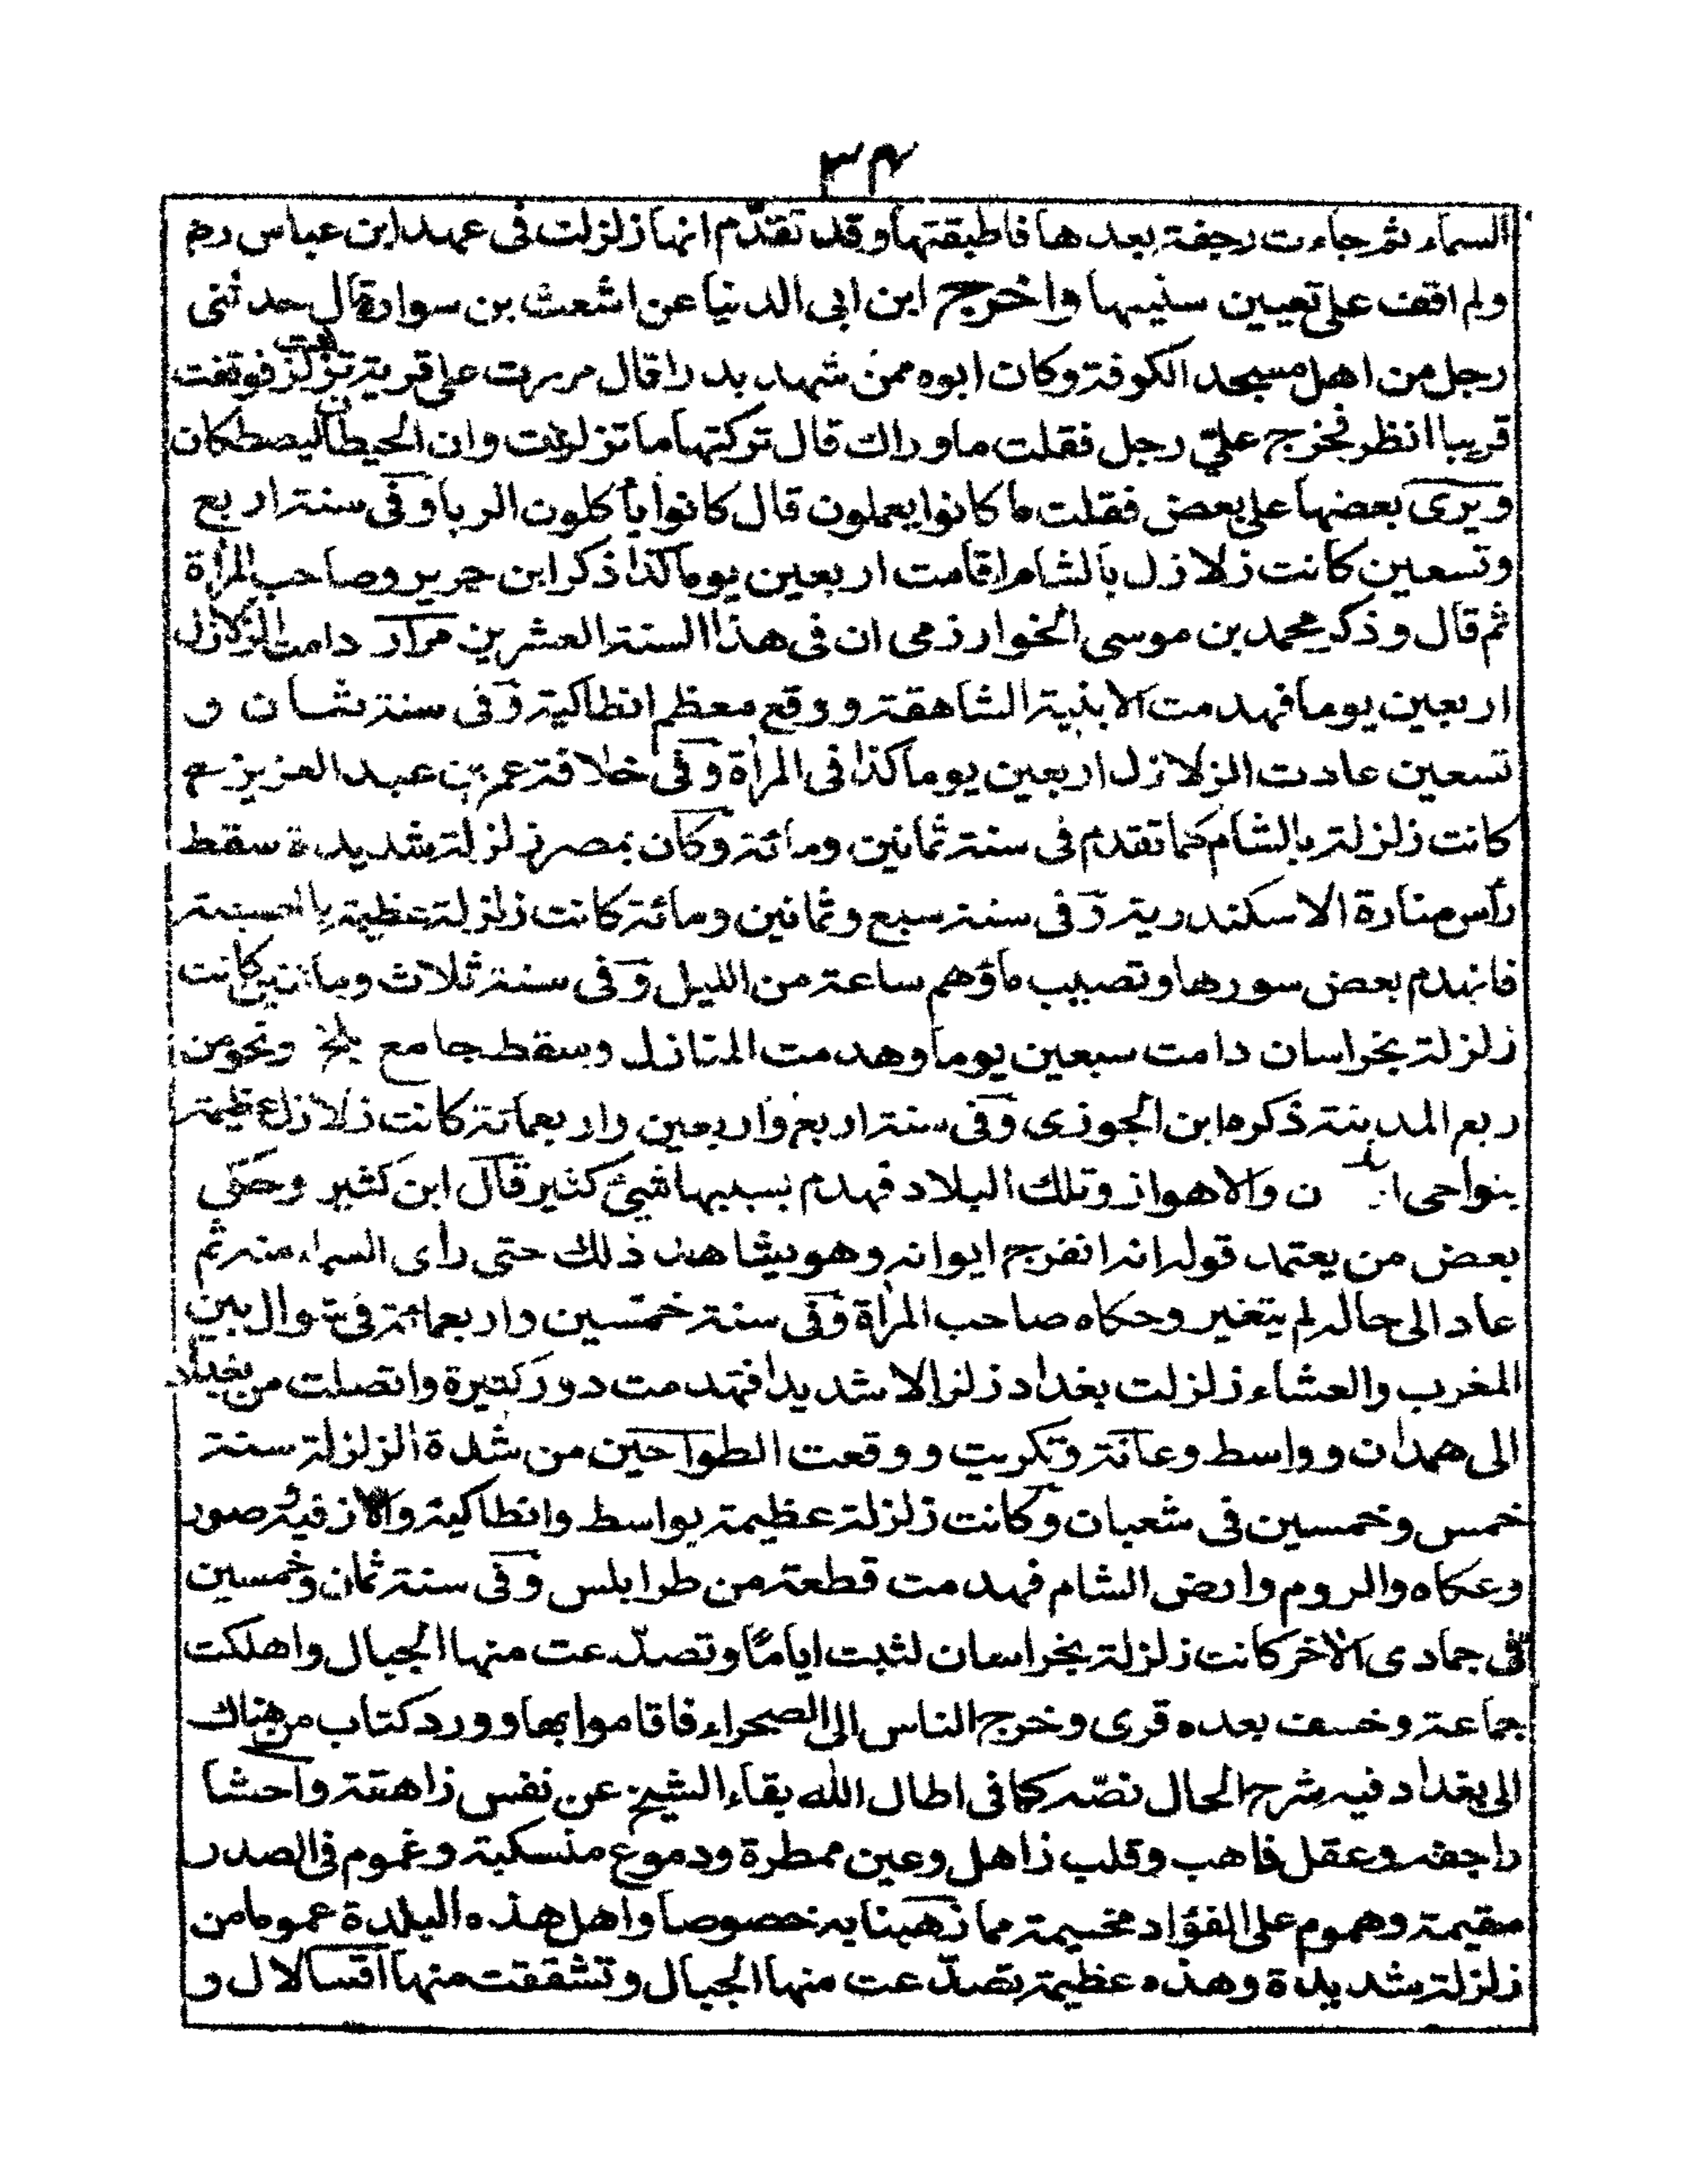 ٣٤
السماء ثم جاءت رجفة بعدها فاطبقتها وقد تقدّم انها زلزلت فى عهد ابن عباس رضـ
ولم اقف على تعيين سنيها واخرج ابن ابى الدنيا عن اشعث بن سوار قال حدثنى
رجل من اهل مسجد الكوفة وكان ابوه ممن شهد بدرا قال مررت على قرية تزلزلت فوقفت
قريبا انظر فخرج علىّ رجل فقلت ما وراك قال تركتها ما تزلزلت وان الحيطان ليصطكان
ويرى بعضها على بعض فقلت ما كانوا يعملون قال كانوا يأكلون الربا وفى سنة اربع
وتسعين كانت زلازل بالشام اقامت اربعين يوما كذا ذكر ابن جرير وصاحب المرأة
ثم قال وذكر محمد بن موسى الخوارزمى ان فى هذا السنة العشرين مرار دامت الزلازل
اربعين يوما فهدمت الابنية الشاهقة ووقع معظم انطاكية وفى سنة ثمان و
تسعين عادت الزلازل اربعين يوما كذا فى المرأة وفى خلافة عمر بن عبد العزيز
كانت زلزلة بالشام كما تقدم فى سنة ثمانين ومائة وكان بمصر زلزلة شديدة سقط
رأس منارة الاسكندرية وفى سنة سبع وثمانين ومائة كانت زلزلة عظيمة
فانهدم بعض سورها وتصيب ماؤهم ساعة من الليل وفى سنة ثلاث ومائتين كانت
زلزلة بخراسان دامت سبعين يوما وهدمت المنازل وسقط جامع بلخ ونحو من
ربع المدينة ذكره ابن الجوزى وفى سنة اربع واربعين واربعمائة كانت زلازل عظيمة
بنواحى والاهواز وتلك البلاد فهدم بسببها شئ كثير قال ابن كثير وحكى
بعض من يعتمد قوله انه انفرج ايوانه وهو يشاهد ذلك حتى رأى السماء منه ثم
عاد الى حاله لم يتغير وحكاه صاحب المرأة وفى سنة خمسين واربعمائة فى شوال بين
المغرب والعشاء زلزلت بغداد زلزالا شديدا فتهدمت دور كثيرة واتصلت من بغداد
الى همدان وواسط وعانة وتكريت ووقعت الطواحين من شدة الزلزلة سنة
خمس وخمسين فى شعبان وكانت زلزلة عظيمة بواسط وانطاكية صور
وعكاه والروم وارض الشام فهدمت قطعة من طرابلس وفى سنة ثمان وخمسين
فى جمادى الاخر كانت زلزلة بخراسان لثبت اياما وتصدّعت منها الجبال واهلكت
جماعة وخسف بعده قرى وخرج الناس الى الصحراء فاقاموا بها وورد كتاب من هناك
الى بغداد فيه شرح الحال نصّه كما فى اطال الله بقاء الشيخ عن نفس زاهتة واحشا
راجفه وعقل ذاهب وقلب زاهل وعين ممطرة ودموع منسكبة وغموم فى الصدر
مقيمة وهموم على الفؤاد مخسيمة مما زهبنا به خصوصا واهل هذه البلدة عموما من
زلزلة شديدة وهذه عظيمة تصدّعت منها الجبال وتشققت منها اقسالال و